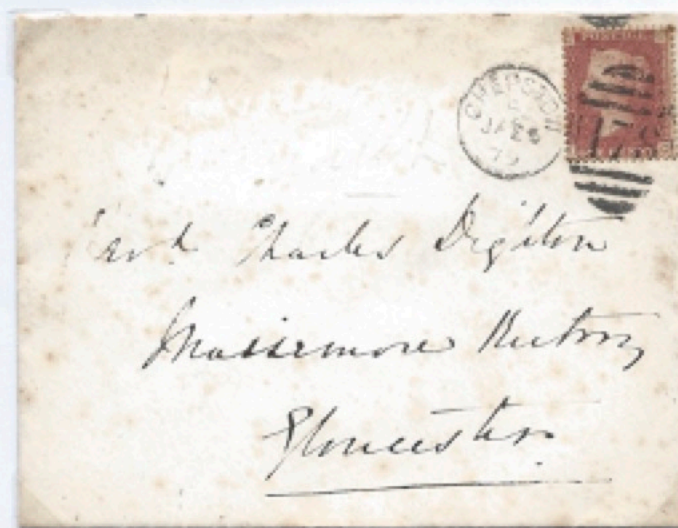 POSTAGE
CHEPSTOW
C
JA 26
79
Charles Dighton
Maisemore Rectory
Gloucester